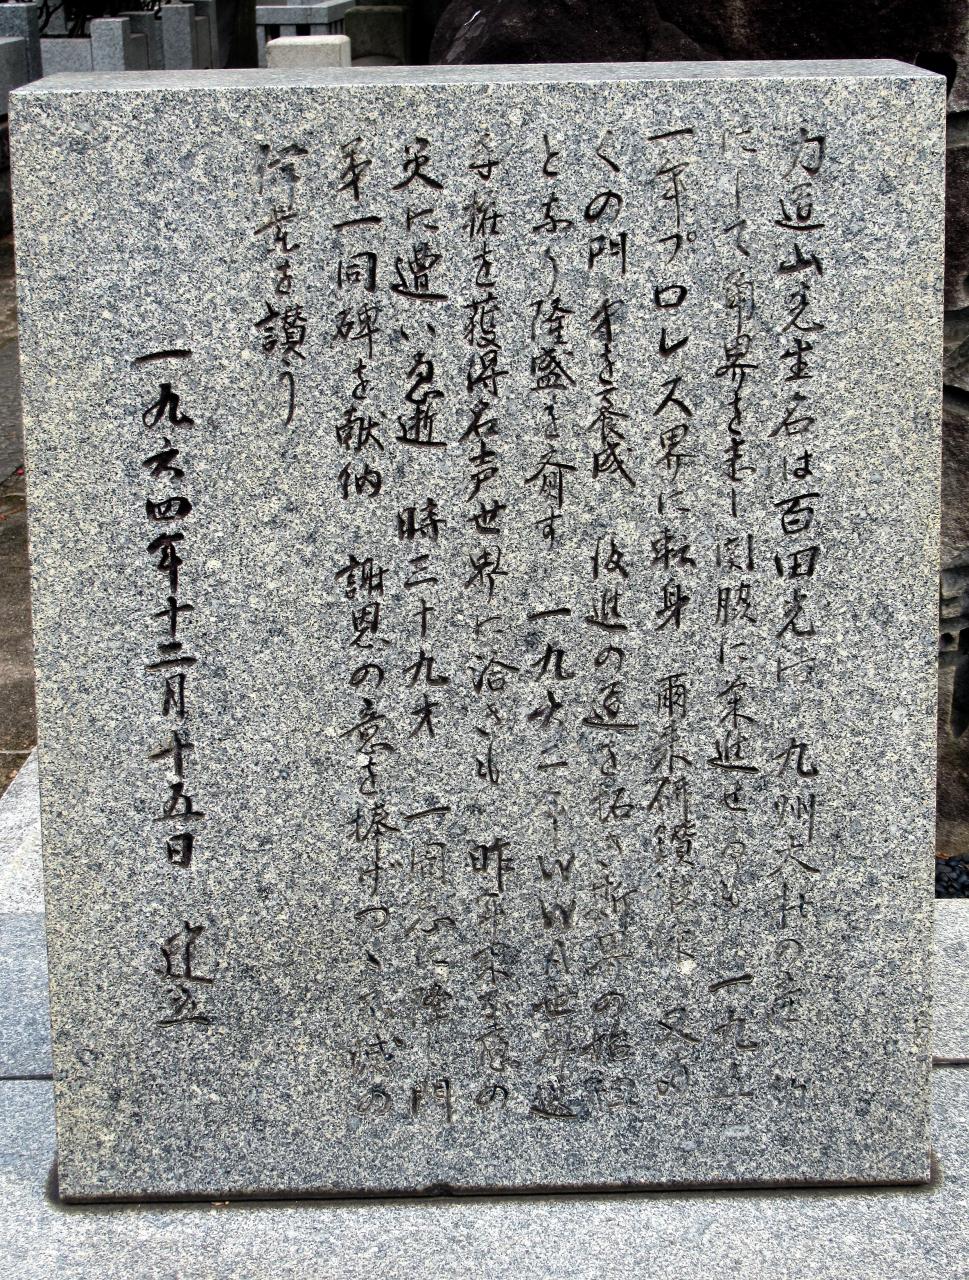 力道山先生名は百田光浩 九州大村の産
にして角界を志し関脇に栄進せるも 一九五
一年プロレス界に転身 爾来研鑽 又
くの門弟を養成 後進の道を拓き斯界の
となり隆盛を齎す 一九六二年WWA世界選
手権を獲得名声世界に洽きも 昨年不慮の
災に遭い急逝 時三十九才 一同 門
弟一同碑を献納 謝恩の意を捧げつゝ の
偉業を讃う
一九六四年十二月十五日 建立